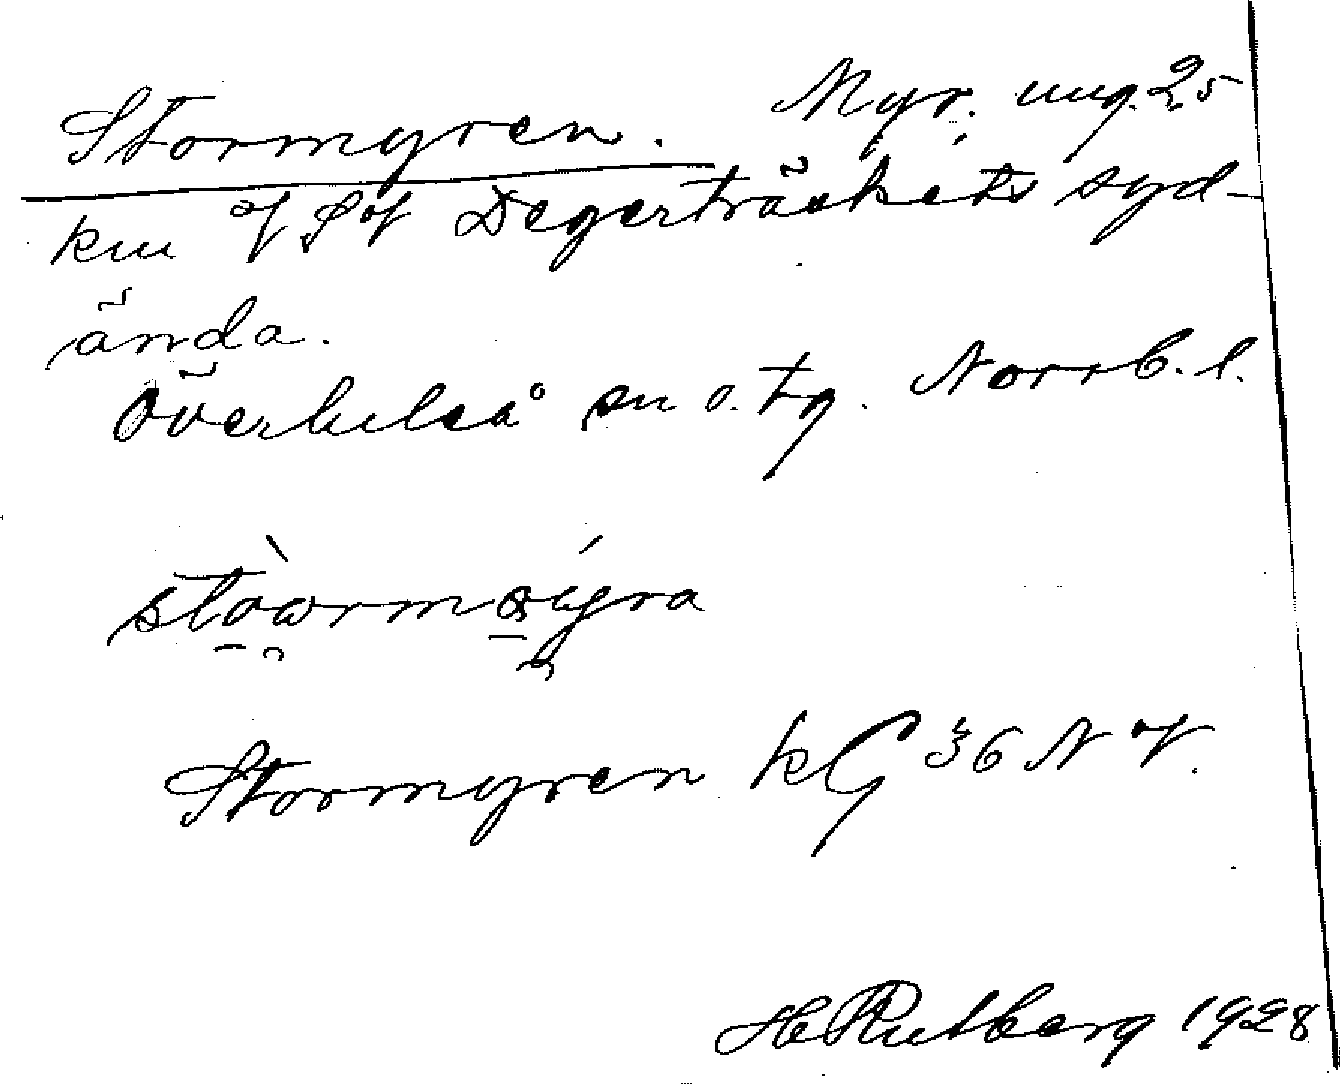 Stormyren. Myr, ung. 25
km V S V Degerträskets syd-
ända.
Överluleå sn o. tg. Norrb. l.
Stormyren kG 36 N V.
H Rutberg 1928